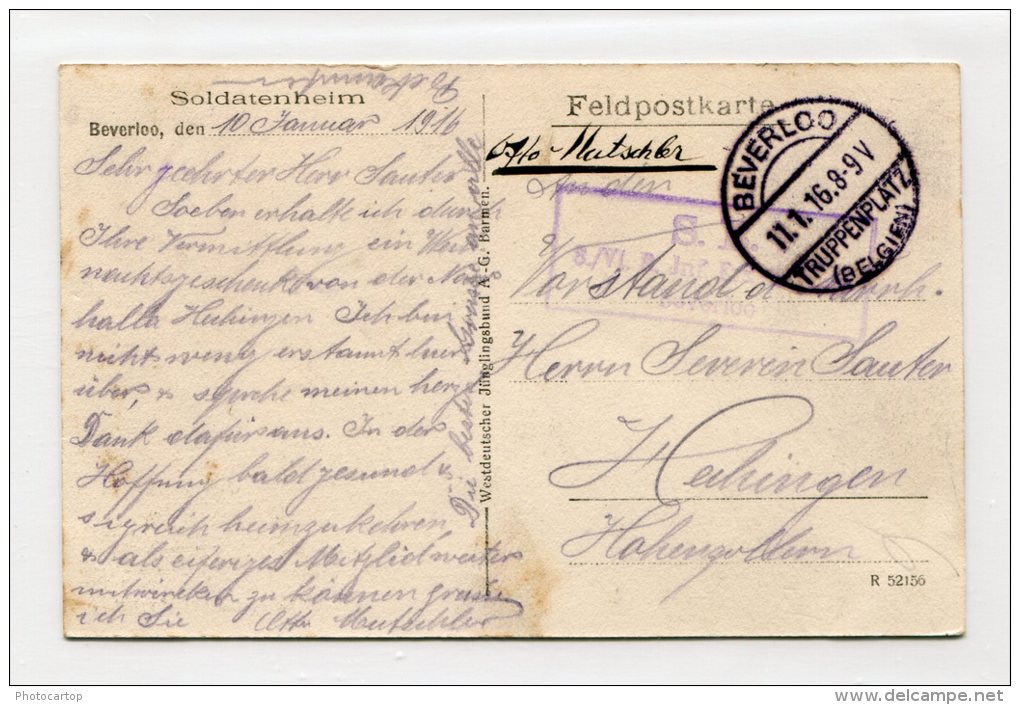 Soldatenheim
Beverloo, den 10 Januar 1916
Sehr geehrter Herr Sauter
Soeben erhalte ich durch
Ihre Vermittlung ein Weih
nachtsgeschenk von der
halla Hechingen Ich bin
nicht wenig erstaunt hier
über, & spreche meinen herzl
Dank dafür aus. In der
Hoffnung bald gesund &
sigreich heimzukehren,
& als eifriges Mitglied weiter
mitwirken zu können grüsse
ich Sie Otto Mutschler
Die besten Grüsse an alle
Westdeutscher Jünglingsbund A.-G. Barmen.
Feldpostkarte
Otto Mutschler
An den
Vorstand d
Herrn Severin Sauter
Hechingen
Hohenzollern
R 52156
BEVERLOO
11.1.16.8-9V
TRUPPENPLATZ
(BELGIEN)
S.
Photocartop
www.delcampe.net